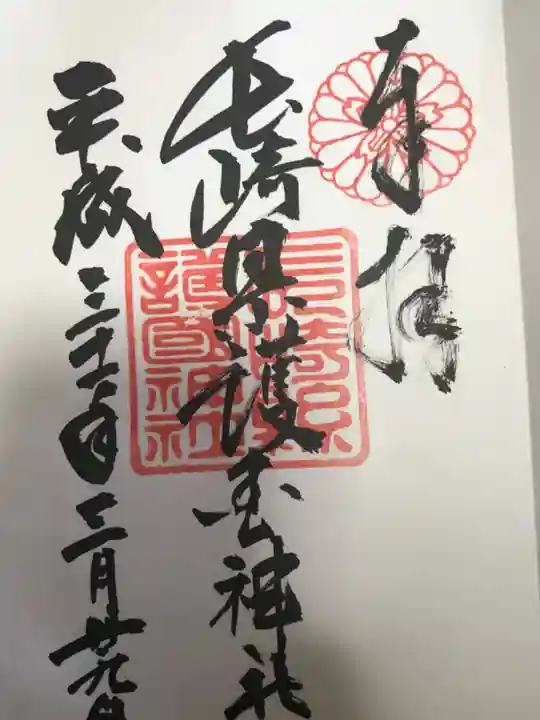 奉拝
長崎県護国神社
平成三十一年三月廿九日
長崎県護國神社